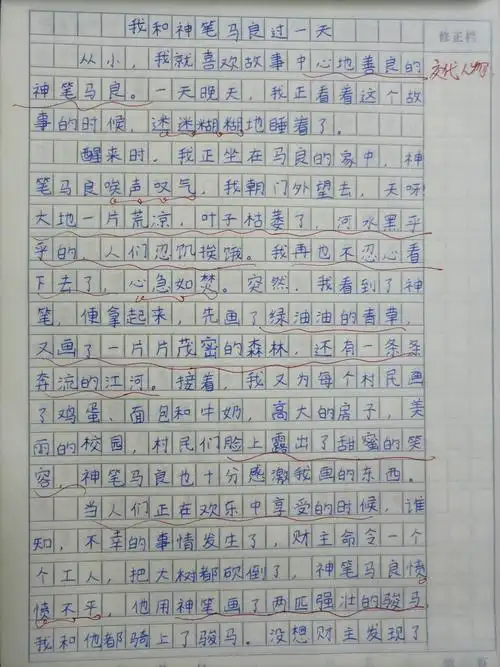 我和神笔马良过一天
修正栏
从小，我就喜欢故事中心地善良的
交代人物
神笔马良。一天晚天，我正看着这个故
事的时候，迷迷糊糊地睡着了。
醒来时，我正坐在马良的家中，神
笔马良唉声叹气，我朝门外望去，天呀
大地一片荒凉，叶子枯萎了，河水黑乎
乎的，人们忍饥挨饿。我再也不忍心看
下去了，心急如焚。突然，我看到了神
笔，便拿起来，先画了绿油油的青草，
又画了一片片茂密的森林，还有一条条
奔流的江河。接着，我又为每个村民画
了鸡蛋、面包和牛奶，高大的房子，美
丽的校园，村民们脸上露出了甜蜜的笑
容，神笔马良也十分感激我画的东西。
当人们正在欢乐中享受的时候，谁
知，不幸的事情发生了，财主命令一个
个工人，把大树都砍倒了，神笔马良愤
愤不平，他用神笔画了两匹强壮的骏马
我和他都骑上了骏马。没想财主发现了